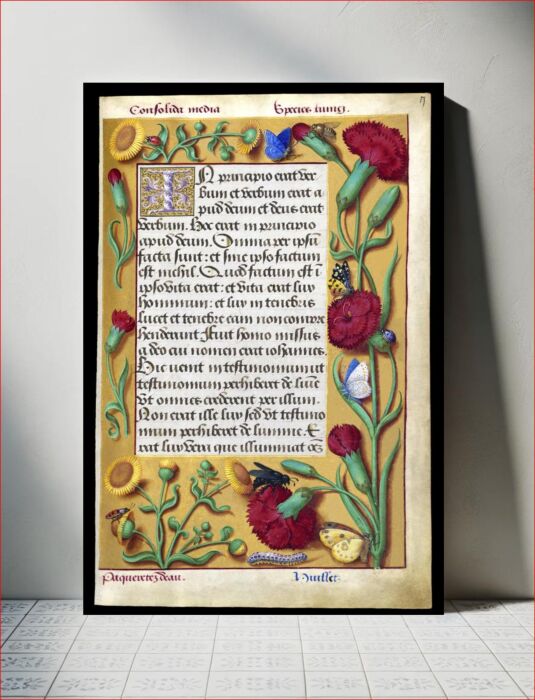 Consolida media Species tunici.
In principio erat ver
bum et verbum erat a
pud deum et deus erat
verbum. Hoc erat in principio
apud deum. Omnia per ipsũ
facta sunt: et sine ipso factum
est nichil. Quod factum est ĩ
ipso vita erat: et vita erat lux
hominum: et lux in tenebris
lucet et tenebre eam non compre
henderunt. Fuit homo missus
a deo cui nomen erat iohannes.
Hic venit in testimonium ut
testimonium perhiberet de lumĩe
Vt omnes crederent per illum.
Non erat ille lux sed vt testimo
nium perhiberet de lumine. E
rat lux vera que illuminat oẽs
Paqueretezdeau. Huillet.